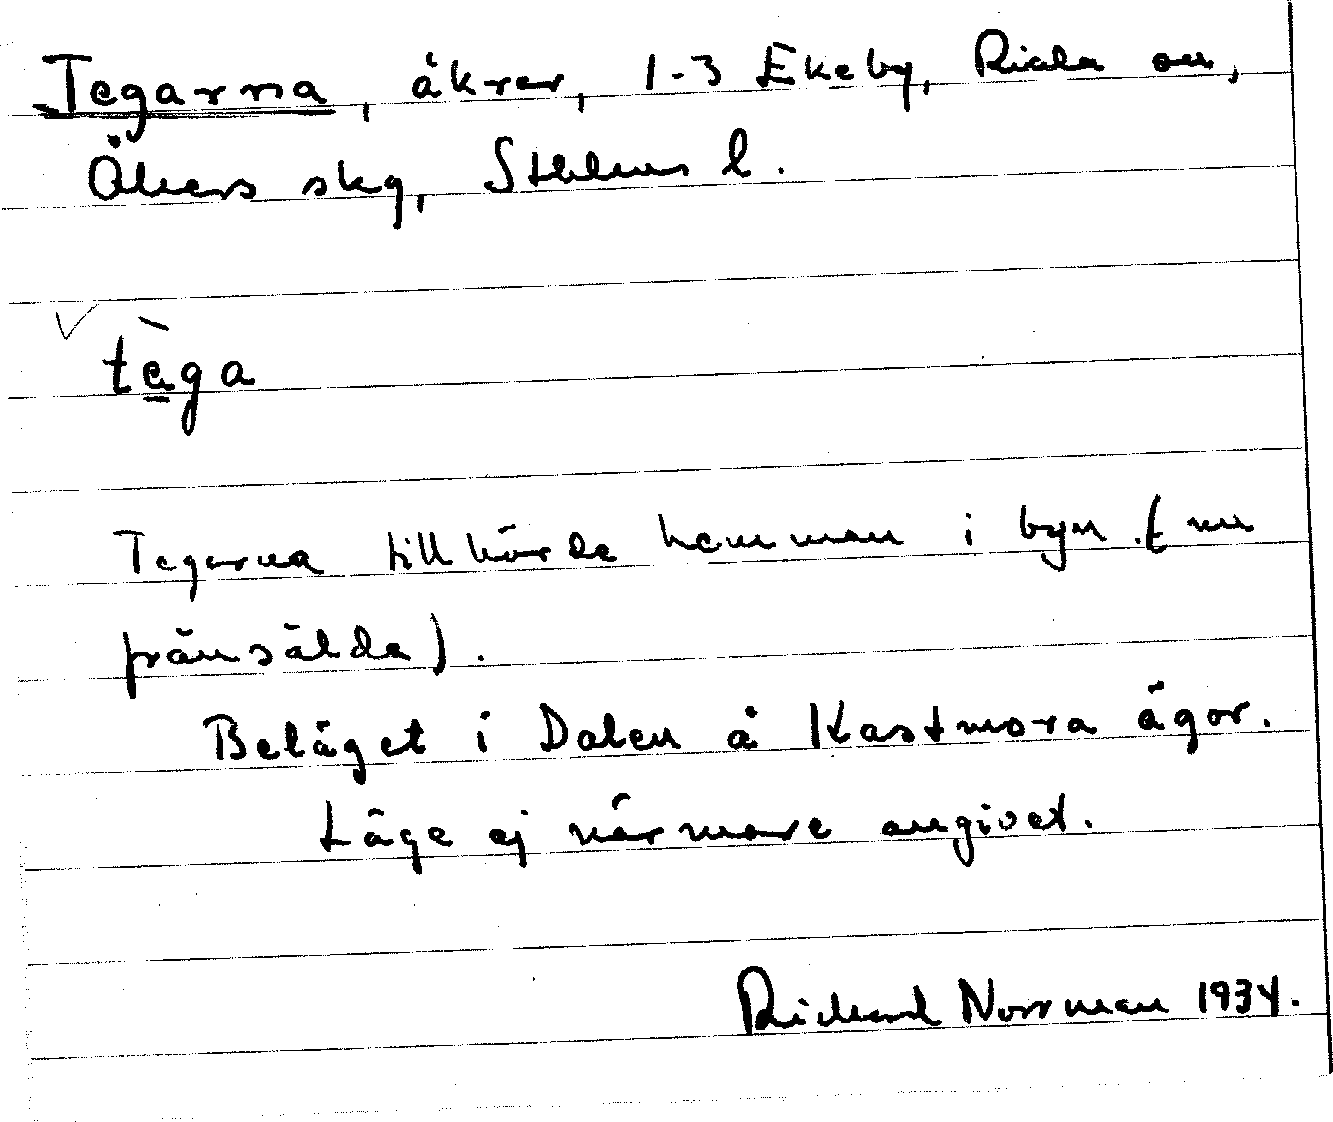 Tegarna, åkrar, 1-3 Ekeby, Riala sn,
Åkers skg, Sthlms l.
tèga
Tegarna tillhörde hemman i byn (nu
frånsålda).
Beläget i Dalen å Kastmora ägor.
Läge ej närmare angivet.
Richard Norrman 1934.